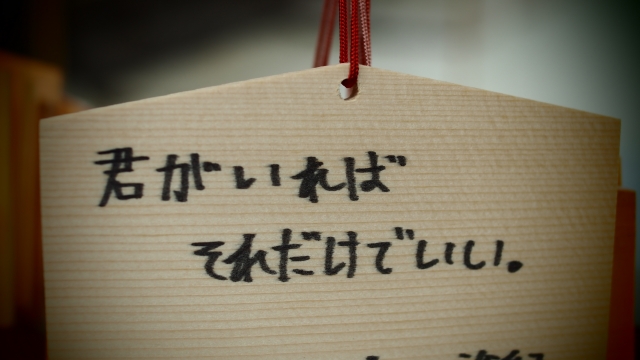 君がいれば
それだけでいい。